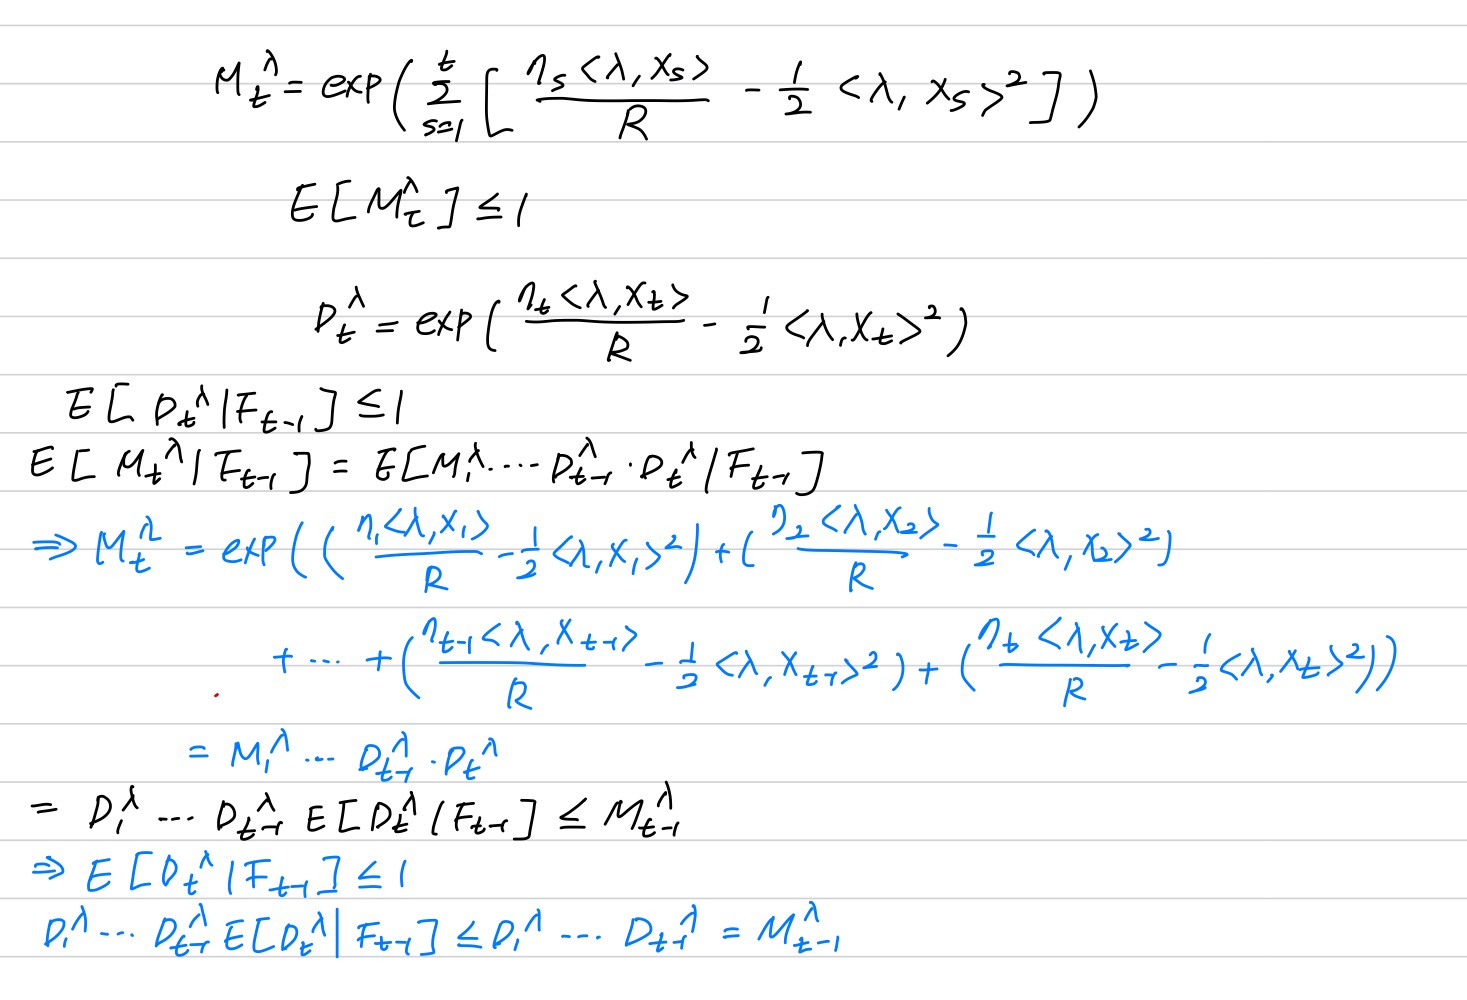 M_t^λ = exp( Σ_{s=1}^{t} [ η_s<λ, X_s> / R - 1/2 <λ, X_s>² ] )
E[M_τ^λ] ≤ 1
D_t^λ = exp( η_t<λ, X_t> / R - 1/2 <λ, X_t>² )
E[D_t^λ | F_{t-1}] ≤ 1
E[M_t^λ | F_{t-1}] = E[M_1^λ ···· D_{t-1}^λ · D_t^λ | F_{t-1}]
⇒ M_t^λ = exp( ( η_1<λ, X_1> / R - 1/2 <λ, X_1>² ) + ( η_2<λ, X_2> / R - 1/2 <λ, X_2>² )
+ ··· + ( η_{t-1}<λ, X_{t-1}> / R - 1/2 <λ, X_{t-1}>² ) + ( η_t<λ, X_t> / R - 1/2 <λ, X_t>² ) )
= M_1^λ ··· D_{t-1}^λ · D_t^λ
= D_1^λ ··· D_{t-1}^λ E[D_t^λ | F_{t-1}] ≤ M_{t-1}^λ
⇒ E[D_t^λ | F_{t-1}] ≤ 1
D_1^λ ··· D_{t-1}^λ E[D_t^λ | F_{t-1}] ≤ D_1^λ ··· D_{t-1}^λ = M_{t-1}^λ